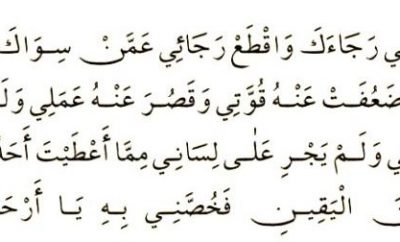 رَجَاءَكَ وَاقْطَعْ رَجَائِي عَمَّنْ سِوَاكَ
ضَعُفَتْ عَنْهُ قُوَّتِي وَقَصُرَ عَنْهُ عَمَلِي
وَلَمْ يَجْرِ عَلَى لِسَانِي مِمَّا أَعْطَيْتَ
الْيَقِينِ فَخُصَّنِي بِهِ يَا